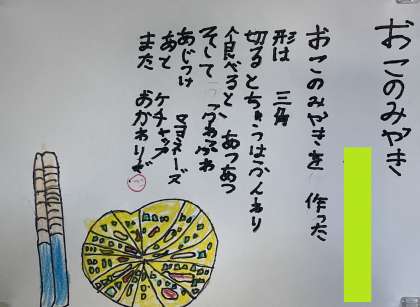 おこのみやき
おこのみやきを 作った
形は 三角
切るとちゅうはふんわり
食べると、あつあつ
そして ふわふわ
あじつけ マヨネーズ
あと ケチャップ
また おかわりだ